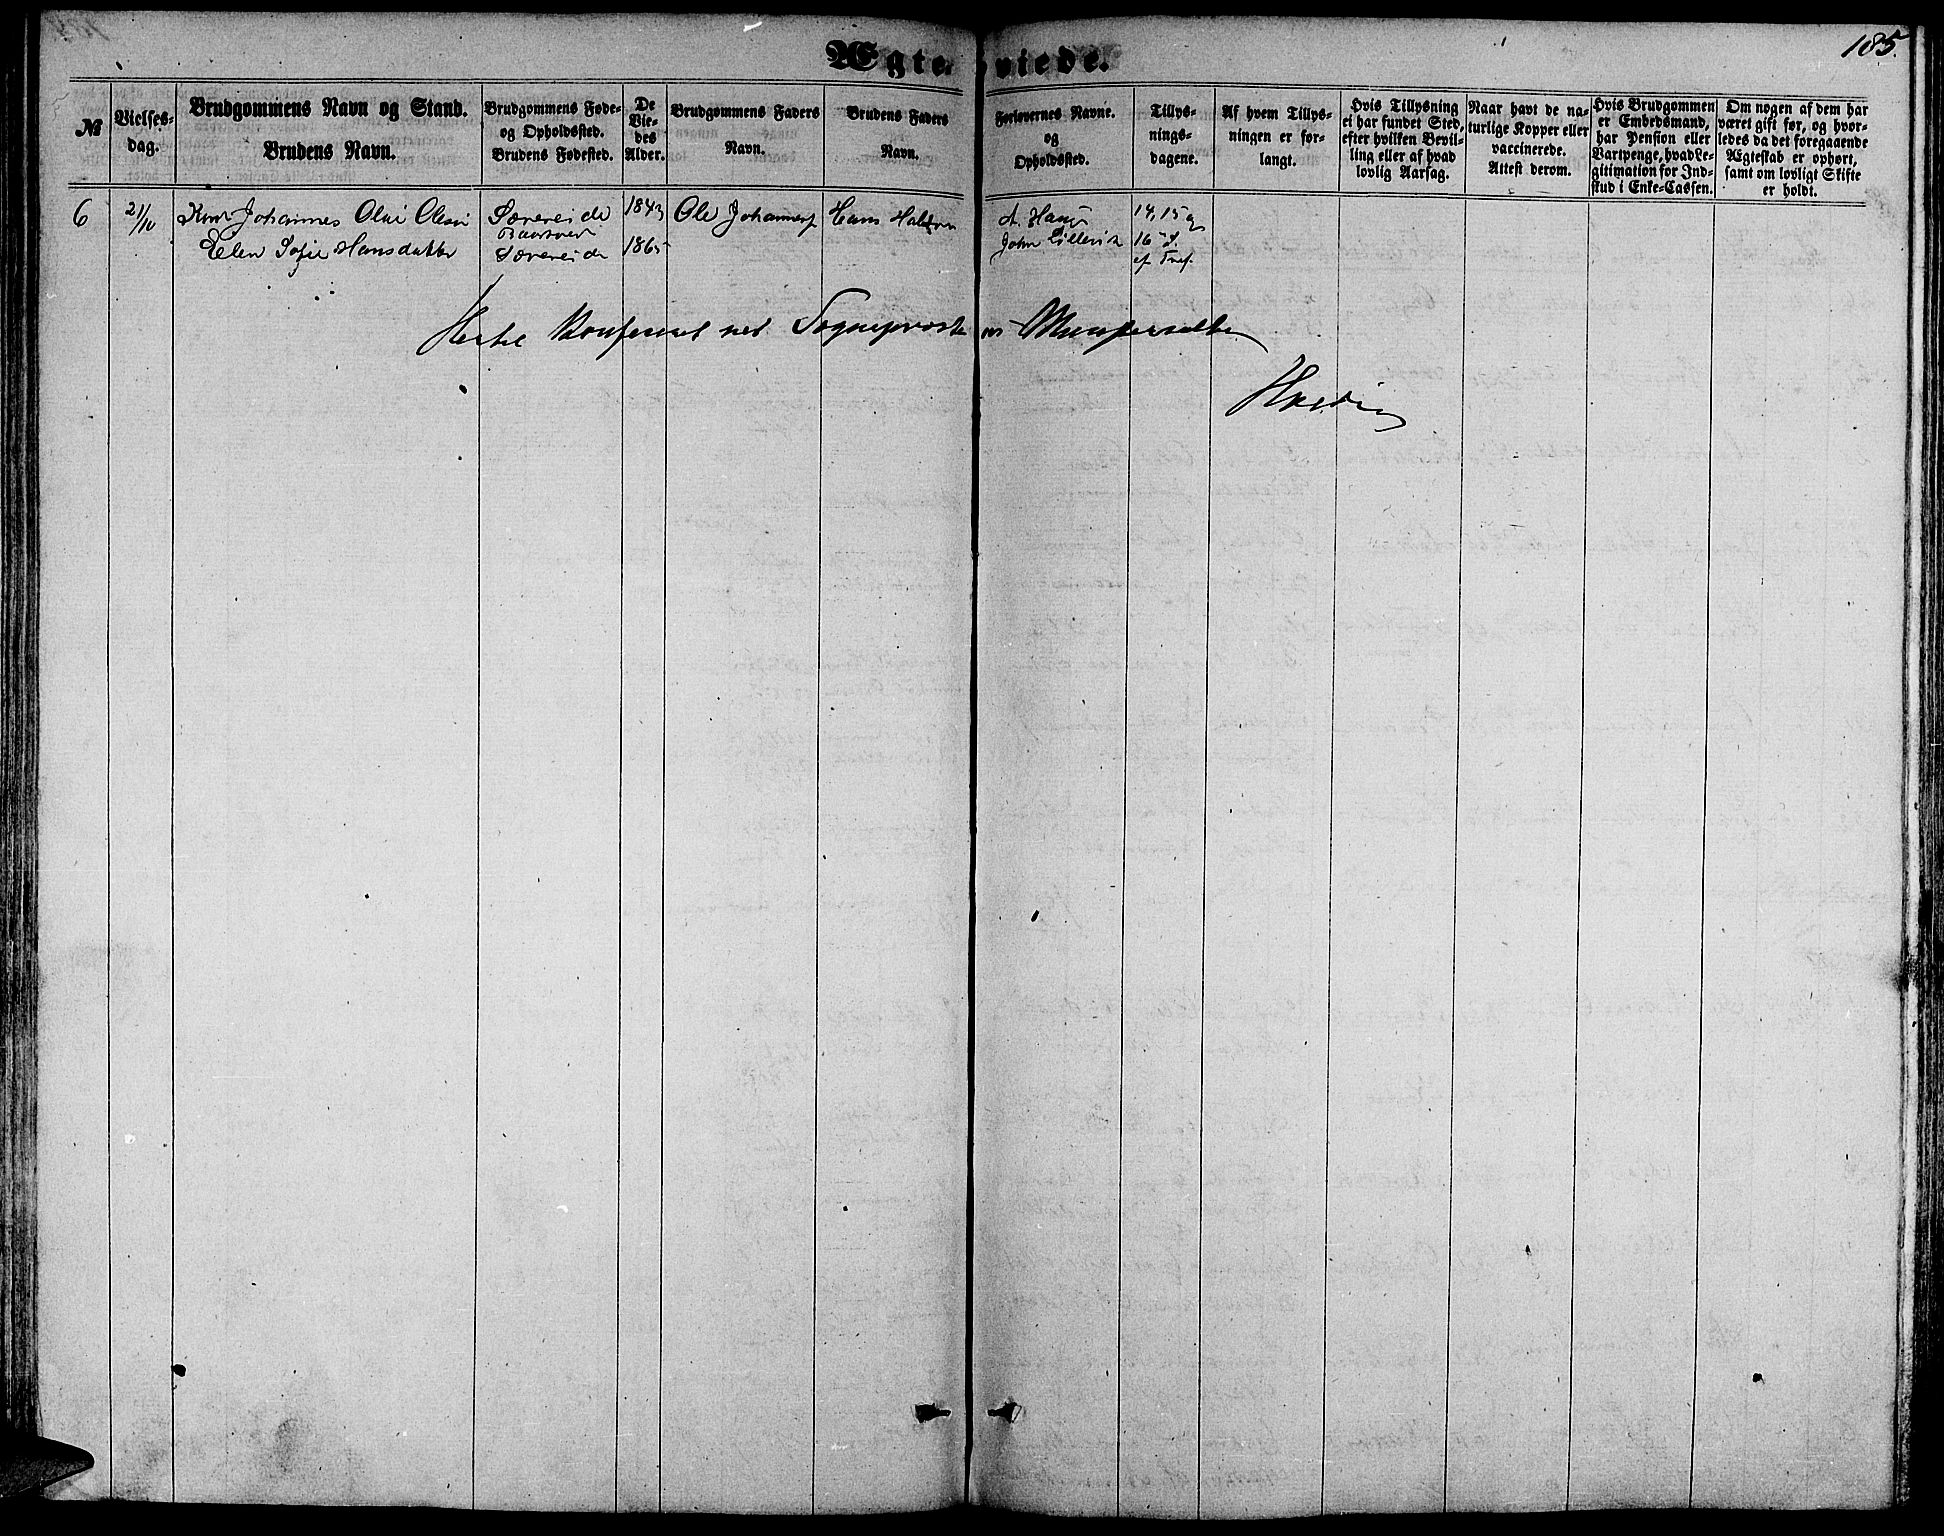 185.
Ægteviede.
№
Vielses-
dag.
Brudgommens Navn og Stand.
Brudens Navn.
Brudgommens Føde-
og Opholdssted.
Brudens Fødested.
De
Vie-
des
Alder.
Brudgommens Faders
Navn.
Brudens Faders
Navn.
Forlovernes Navne.
og
Opholdssted.
Tillys-
nings-
dagene.
Af hvem Tillys-
ningen er for-
langt.
Hvis Tillysning
ei har fundet Sted,
efter hvilken Bevil-
ling eller af hvad
lovlig Aarsag.
Naar havt de na-
turlige Kopper eller
vaccinerede.
Attest derom.
Hvis Brudgommen
er Embedsmand,
har Pension eller
Vartpenge, hvad Le-
gitimation for Ind-
skud i Enke-Cassen.
Om nogen af dem har
været gift før, og hvor-
ledes da det foregaaende
Ægteskab er ophørt,
samt om lovligt Skifte
er holdt.
6
21/10
Johannes Olai Olsen
Elen Sofie Hansdatter
Sørereide
Sørereide
1843
1865
Ole Johannes
Hans
A. Haug
John
14, 15 og
16 S.
ef Tref.
Hertil Konfereret ved Sogneprest